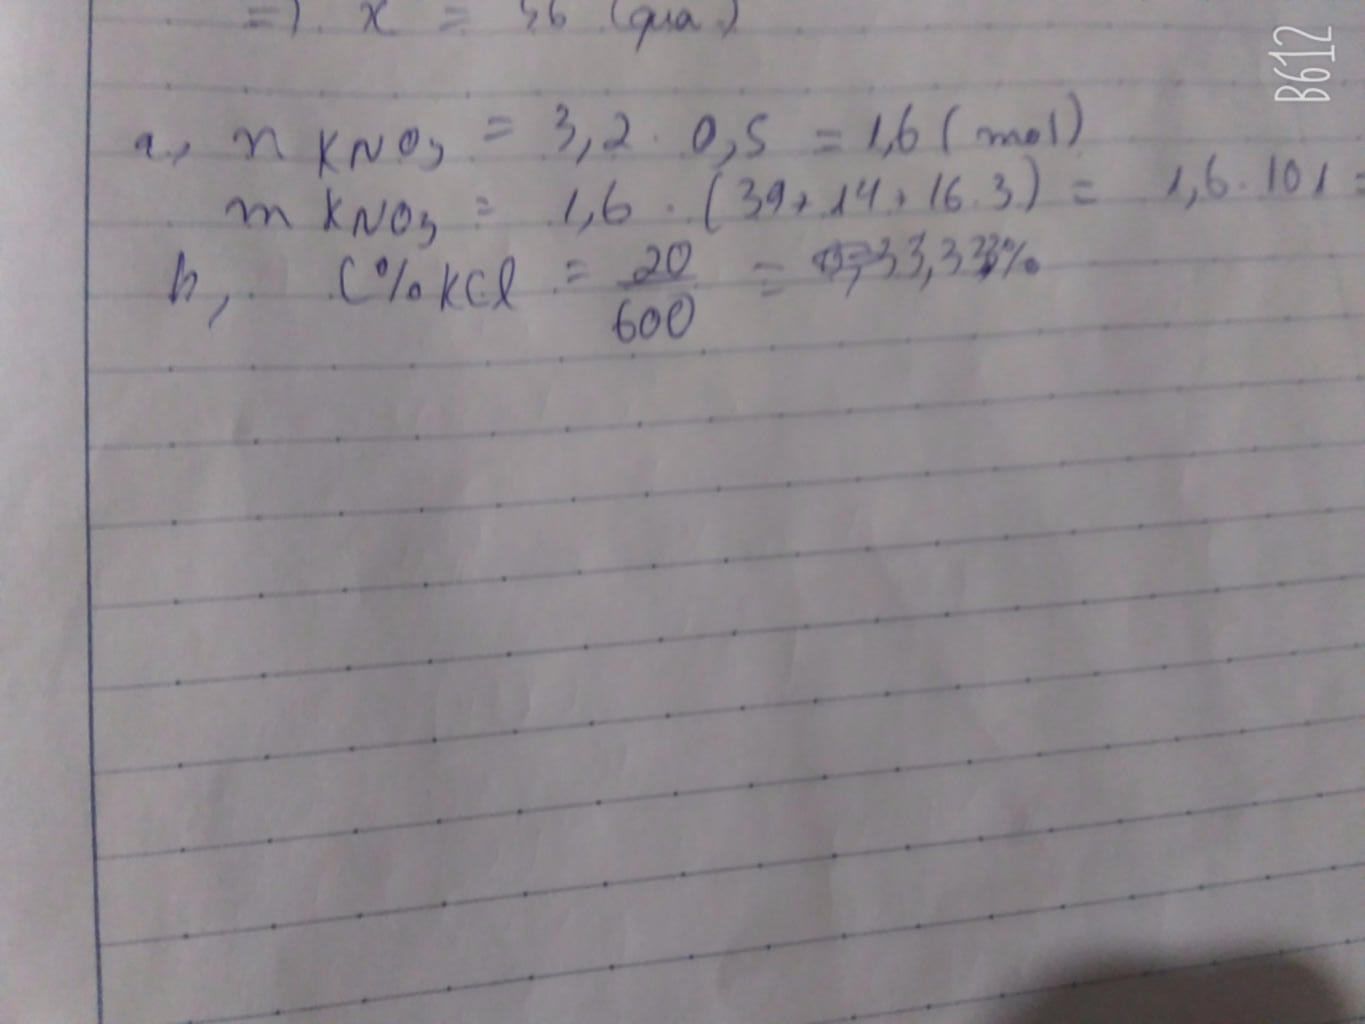 =) x = 56 (quả)
a, n KNO3 = 3,2 . 0,5 = 1,6 (mol)
m KNO3 = 1,6 . (39 + 14 + 16.3) = 1,6 . 101 =
b, C% KCl = 20/600 = 33,33%
B612